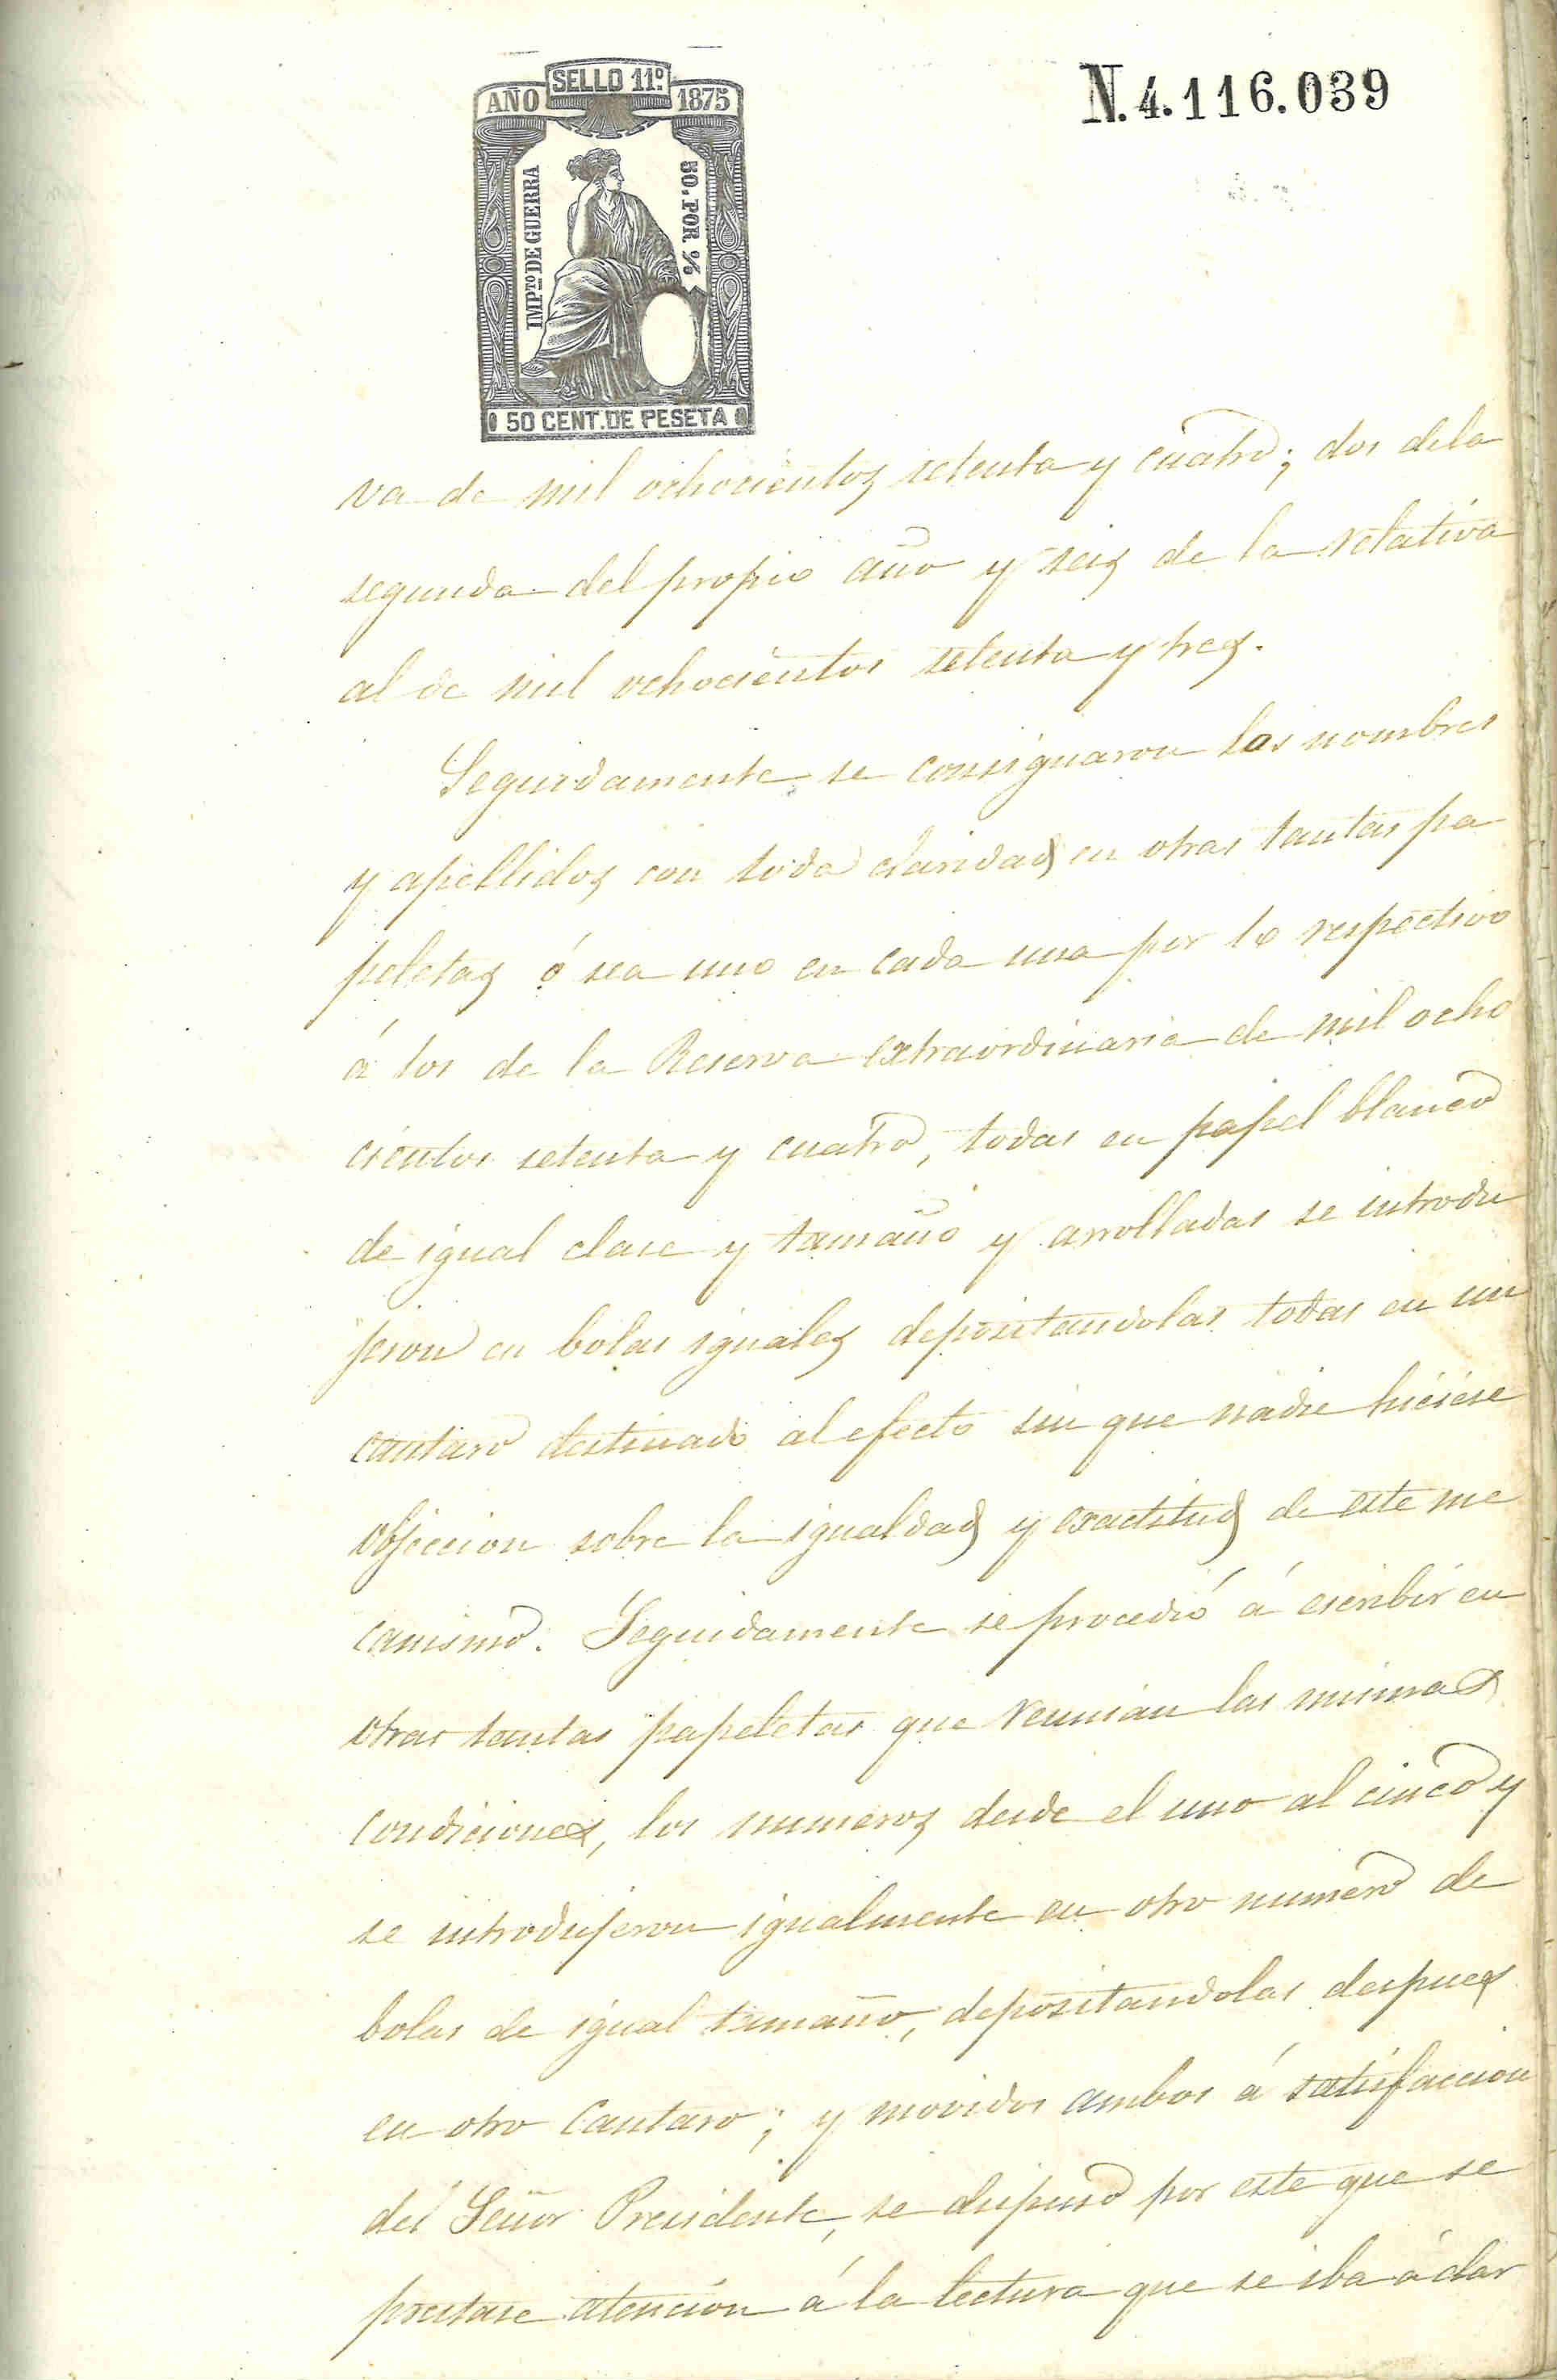 SELLO 11º
AÑO 1875
N.4.116.039
IMPTO DE GUERRA
50. POR %
50 CENT. DE PESETA
va de mil ochocientos setenta y cuatro; dos dela
segunda del propio año y seis de la relativa
al de mil ochocientos setenta y tres.
Seguidamente se consignaron los nombres
y apellidos con toda claridad en otras tantas pa
peletas ó sea uno en cada una por lo respectivo
á los de la Reserva extraordinaria de mil ocho
cientos setenta y cuatro, todas en papel blanco
de igual clase y tamaño y arrolladas se introdu
jeron en bolas iguales depositandolas todas en un
cantaro destinado al efecto sin que nadie hiciese
objeccion sobre la igualdad y exactitud de este me
canismo. Seguidamente se procedió á escribir en
otras tantas papeletas que reunian las mismas
condiciones, los numeros desde el uno al cinco y
se introdujeron igualmente en otro numero de
bolas de igual tamaño, depositandolas despues
en otro cantaro; y movidos ambos á satisfaccion
del Señor Presidente, se dispuso por este que se
prestase atención á la lectura que se iba á dar